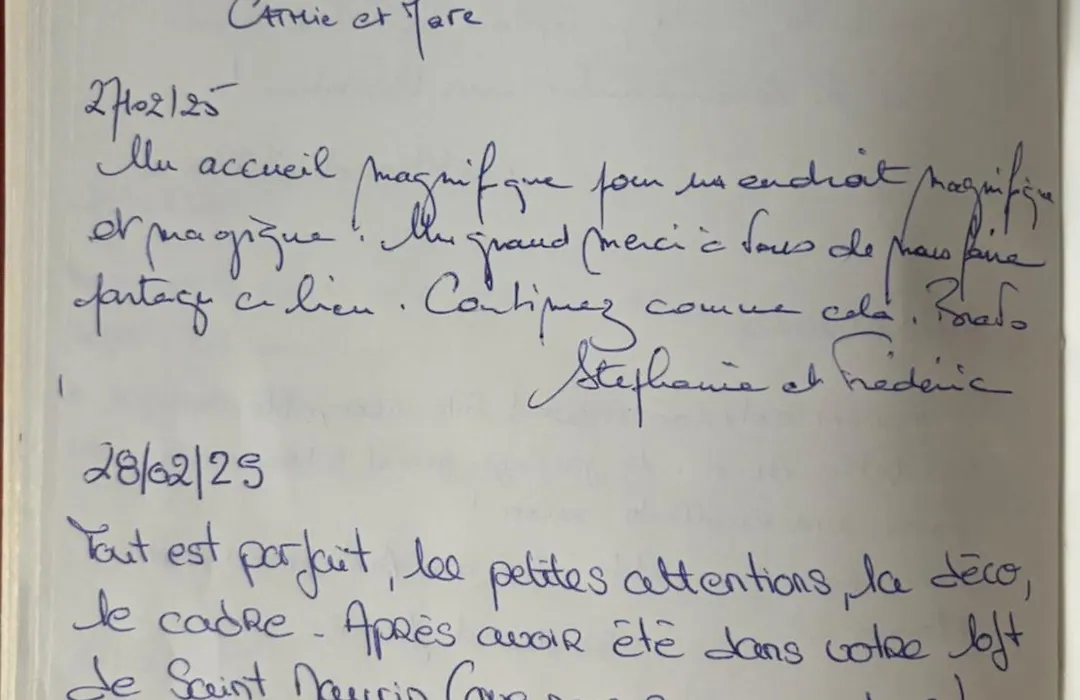 CATHIE et Marc
27/02/25
Un accueil magnifique pour un endroit magnifique
et magique ! Un grand merci à vous de nous faire
partager ce lieu. Continuez comme cela. Bravo
Stephanie et Frédéric
28/02/25
Tout est parfait, les petites attentions, la déco,
le cadre. Après avoir été dans votre loft
de Saint Maurin